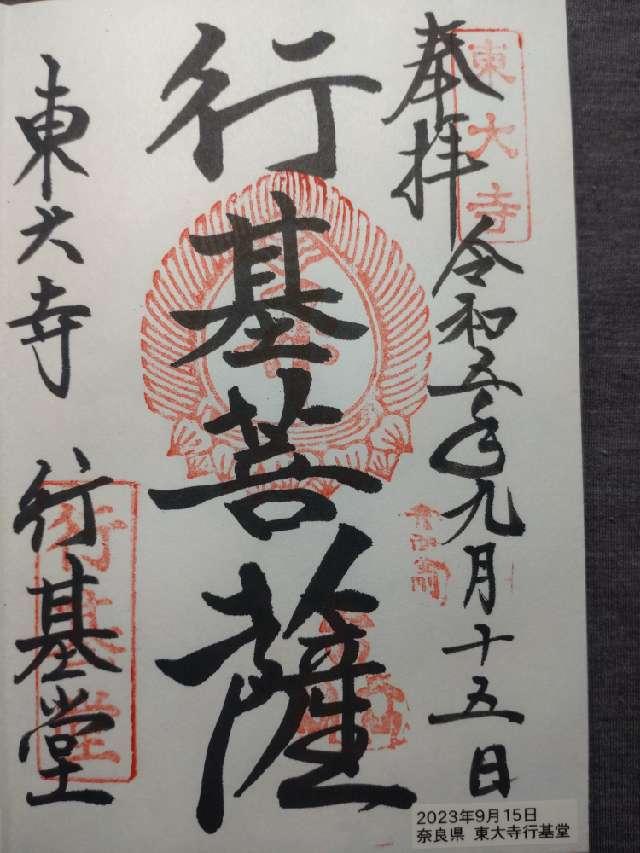 奉拝
東大寺
令和五年九月十五日
行基菩薩
東大寺 行基堂
行基堂
2023年9月15日
奈良県 東大寺行基堂